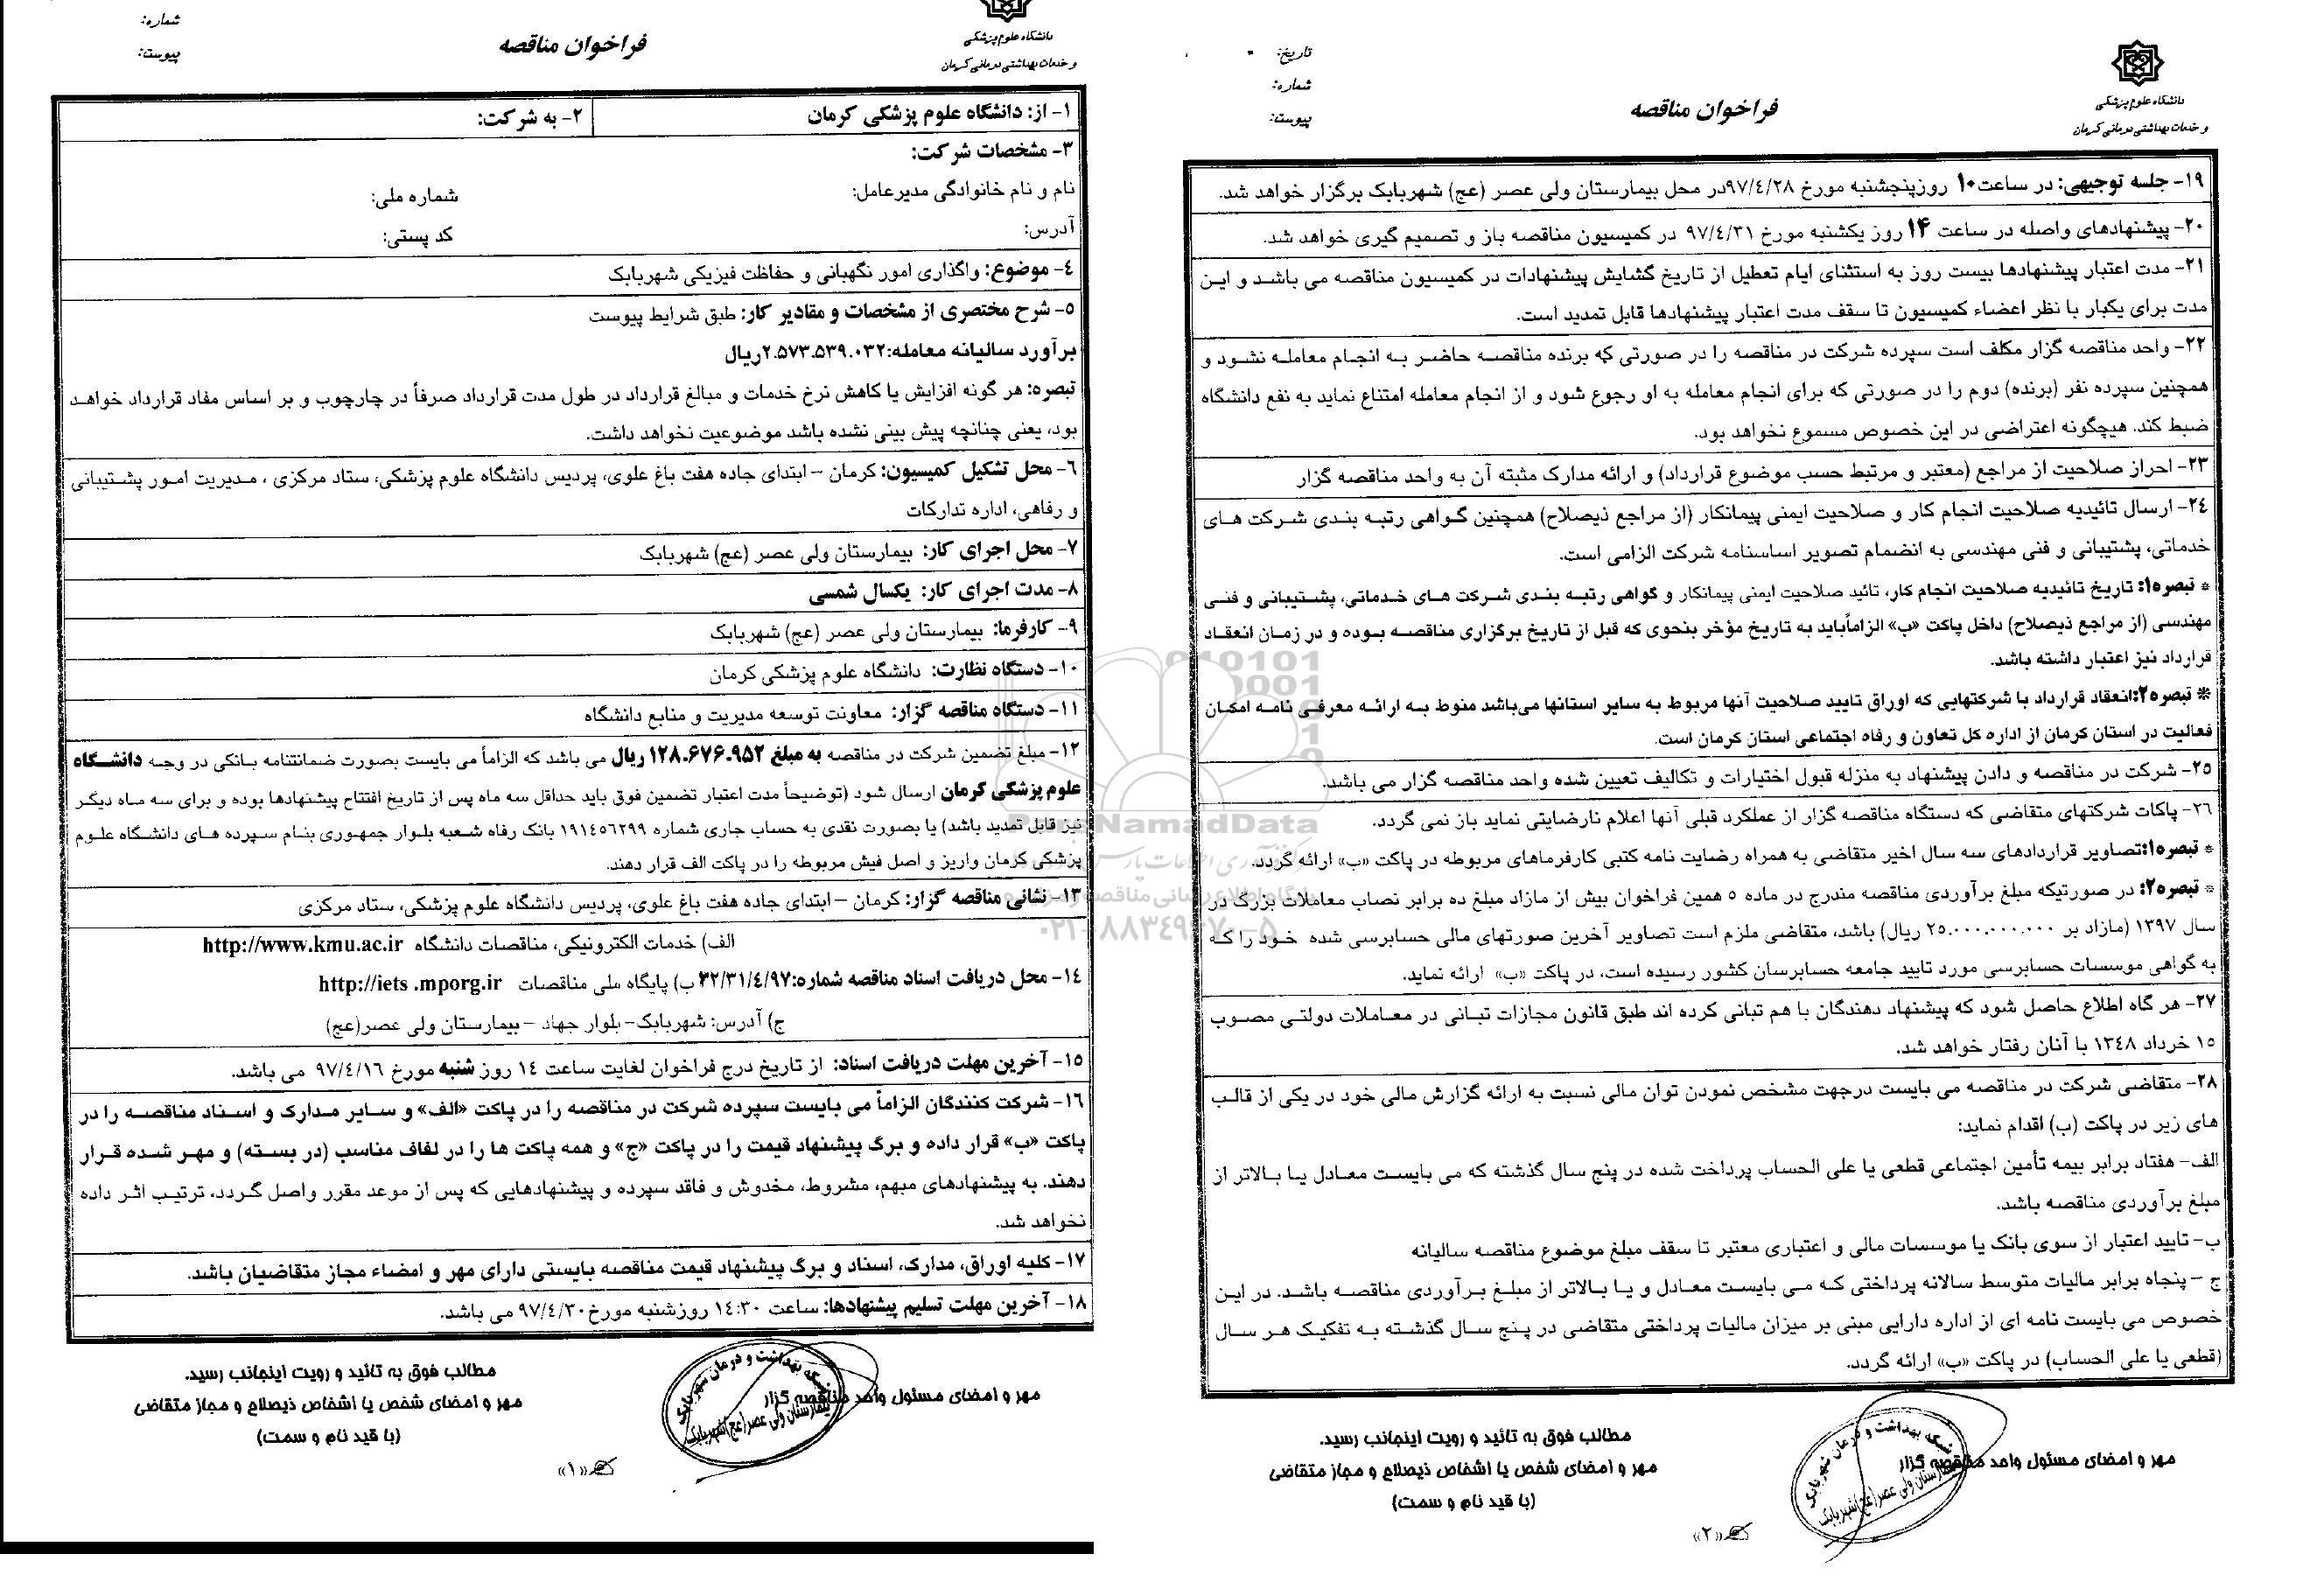 دانشگاه علوم پزشکی
و خدمات بهداشتی درمانی کرمان
فراخوان مناقصه
شماره:
پیوست:
۱- از: دانشگاه علوم پزشکی کرمان
۲- به شرکت:
۳- مشخصات شرکت:
نام و نام خانوادگی مدیرعامل:
شماره ملی:
آدرس:
کد پستی:
۴- موضوع: واگذاری امور نگهبانی و حفاظت فیزیکی شهربابک
۵- شرح مختصری از مشخصات و مقادیر کار: طبق شرایط پیوست
برآورد سالیانه معامله:۲.۵۷۳.۵۳۹.۰۳۲ریال
تبصره: هر گونه افزایش یا کاهش نرخ خدمات و مبالغ قرارداد در طول مدت قرارداد صرفاً در چارچوب و بر اساس مفاد قرارداد خواهد
بود، یعنی چنانچه پیش بینی نشده باشد موضوعیت نخواهد داشت.
۶- محل تشکیل کمیسیون: کرمان – ابتدای جاده هفت باغ علوی، پردیس دانشگاه علوم پزشکی، ستاد مرکزی ، مدیریت امور پشتیبانی
و رفاهی، اداره تدارکات
۷- محل اجرای کار: بیمارستان ولی عصر (عج) شهربابک
۸- مدت اجرای کار: یکسال شمسی
۹- کارفرما: بیمارستان ولی عصر (عج) شهربابک
۱۰- دستگاه نظارت: دانشگاه علوم پزشکی کرمان
۱۱- دستگاه مناقصه گزار: معاونت توسعه مدیریت و منابع دانشگاه
۱۲- مبلغ تضمین شرکت در مناقصه به مبلغ ۱۲۸.۶۷۶.۹۵۲ ریال می باشد که الزاماً می بایست بصورت ضمانتنامه بانکی در وجه دانشگاه
علوم پزشکی کرمان ارسال شود (توضیحاً مدت اعتبار تضمین فوق باید حداقل سه ماه پس از تاریخ افتتاح پیشنهادها بوده و برای سه ماه دیگر
نیز قابل تمدید باشد) یا بصورت نقدی به حساب جاری شماره ۱۹۱۴۵۶۲۹۹ بانک رفاه شعبه بلوار جمهوری بنام سپرده های دانشگاه علوم
پزشکی کرمان واریز و اصل فیش مربوطه را در پاکت الف قرار دهند.
۱۳- نشانی مناقصه گزار: کرمان – ابتدای جاده هفت باغ علوی، پردیس دانشگاه علوم پزشکی، ستاد مرکزی
الف) خدمات الکترونیکی، مناقصات دانشگاه http://www.kmu.ac.ir
۱۴- محل دریافت اسناد مناقصه شماره:۲۲/۳۱/۴/۹۷ ب) پایگاه ملی مناقصات http://iets .mporg.ir
ج) آدرس: شهربابک- بلوار جهاد – بیمارستان ولی عصر(عج)
۱۵- آخرین مهلت دریافت اسناد: از تاریخ درج فراخوان لغایت ساعت ۱۴ روز شنبه مورخ ۹۷/۴/۱۶ می باشد.
۱۶- شرکت کنندگان الزاماً می بایست سپرده شرکت در مناقصه را در پاکت «الف» و سایر مدارک و اسناد مناقصه را در
پاکت «ب» قرار داده و برگ پیشنهاد قیمت را در پاکت «ج» و همه پاکت ها را در لفاف مناسب (در بسته) و مهر شده قرار
دهند. به پیشنهادهای مبهم، مشروط، مخدوش و فاقد سپرده و پیشنهادهایی که پس از موعد مقرر واصل گردد، ترتیب اثر داده
نخواهد شد.
۱۷- کلیه اوراق، مدارک، اسناد و برگ پیشنهاد قیمت مناقصه بایستی دارای مهر و امضاء مجاز متقاضیان باشد.
۱۸- آخرین مهلت تسلیم پیشنهادها: ساعت ۱۴:۳۰ روزشنبه مورخ۹۷/۴/۳۰ می باشد.
مطالب فوق به تائید و رویت اینجانب رسید.
مهر و امضای مسئول واحد مناقصه گزار
مهر و امضای شخص یا اشخاص ذیصلاح و مجاز متقاضی
(با قید نام و سمت)
شبکه بهداشت و درمان شهربابک
بیمارستان ولی عصر(عج)شهربابک
«۱»
دانشگاه علوم پزشکی
و خدمات بهداشتی درمانی کرمان
فراخوان مناقصه
تاریخ:
شماره:
پیوست:
۱۹- جلسه توجیهی: در ساعت۱۰ روزپنجشنبه مورخ ۹۷/۴/۲۸در محل بیمارستان ولی عصر (عج) شهربابک برگزار خواهد شد.
۲۰- پیشنهادهای واصله در ساعت ۱۴ روز یکشنبه مورخ ۹۷/۴/۳۱ در کمیسیون مناقصه باز و تصمیم گیری خواهد شد.
۲۱- مدت اعتبار پیشنهادها بیست روز به استثنای ایام تعطیل از تاریخ گشایش پیشنهادات در کمیسیون مناقصه می باشد و این
مدت برای یکبار با نظر اعضاء کمیسیون تا سقف مدت اعتبار پیشنهادها قابل تمدید است.
۲۲- واحد مناقصه گزار مکلف است سپرده شرکت در مناقصه را در صورتی که برنده مناقصه حاضر به انجام معامله نشود و
همچنین سپرده نفر (برنده) دوم را در صورتی که برای انجام معامله به او رجوع شود و از انجام معامله امتناع نماید به نفع دانشگاه
ضبط کند. هیچگونه اعتراضی در این خصوص مسموع نخواهد بود.
۲۳- احراز صلاحیت از مراجع (معتبر و مرتبط حسب موضوع قرارداد) و ارائه مدارک مثبته آن به واحد مناقصه گزار
۲۴- ارسال تائیدیه صلاحیت انجام کار و صلاحیت ایمنی پیمانکار (از مراجع ذیصلاح) همچنین گواهی رتبه بندی شرکت های
خدماتی، پشتیبانی و فنی مهندسی به انضمام تصویر اساسنامه شرکت الزامی است.
* تبصره۱: تاریخ تائیدیه صلاحیت انجام کار، تائید صلاحیت ایمنی پیمانکار و گواهی رتبه بندی شرکت های خدماتی، پشتیبانی و فنی
مهندسی (از مراجع ذیصلاح) داخل پاکت «ب» الزاماًباید به تاریخ مؤخر بنحوی که قبل از تاریخ برگزاری مناقصه بوده و در زمان انعقاد
قرارداد نیز اعتبار داشته باشد.
* تبصره۲:انعقاد قرارداد با شرکتهایی که اوراق تایید صلاحیت آنها مربوط به سایر استانها می‌باشد منوط به ارائه معرفی نامه امکان
فعالیت در استان کرمان از اداره کل تعاون و رفاه اجتماعی استان کرمان است.
۲۵- شرکت در مناقصه و دادن پیشنهاد به منزله قبول اختیارات و تکالیف تعیین شده واحد مناقصه گزار می باشد.
۲۶- پاکات شرکتهای متقاضی که دستگاه مناقصه گزار از عملکرد قبلی آنها اعلام نارضایتی نماید باز نمی گردد.
* تبصره۱:تصاویر قراردادهای سه سال اخیر متقاضی به همراه رضایت نامه کتبی کارفرماهای مربوطه در پاکت «ب» ارائه گردد.
* تبصره۲: در صورتیکه مبلغ برآوردی مناقصه مندرج در ماده ۵ همین فراخوان بیش از مازاد مبلغ ده برابر نصاب معاملات بزرگ در
سال ۱۳۹۷ (مازاد بر ۲۵.۰۰۰.۰۰۰.۰۰۰ ریال) باشد، متقاضی ملزم است تصاویر آخرین صورتهای مالی حسابرسی شده خود را که
به گواهی موسسات حسابرسی مورد تایید جامعه حسابرسان کشور رسیده است، در پاکت «ب» ارائه نماید.
۲۷- هر گاه اطلاع حاصل شود که پیشنهاد دهندگان با هم تبانی کرده اند طبق قانون مجازات تبانی در معاملات دولتی مصوب
۱۵ خرداد ۱۳۴۸ با آنان رفتار خواهد شد.
۲۸- متقاضی شرکت در مناقصه می بایست درجهت مشخص نمودن توان مالی نسبت به ارائه گزارش مالی خود در یکی از قالب
های زیر در پاکت (ب) اقدام نماید:
الف- هفتاد برابر بیمه تأمین اجتماعی قطعی یا علی الحساب پرداخت شده در پنج سال گذشته که می بایست معادل یا بالاتر از
مبلغ برآوردی مناقصه باشد.
ب- تایید اعتبار از سوی بانک یا موسسات مالی و اعتباری معتبر تا سقف مبلغ موضوع مناقصه سالیانه
ج – پنجاه برابر مالیات متوسط سالانه پرداختی که می بایست معادل و یا بالاتر از مبلغ برآوردی مناقصه باشد. در این
خصوص می بایست نامه ای از اداره دارایی مبنی بر میزان مالیات پرداختی متقاضی در پنج سال گذشته به تفکیک هر سال
(قطعی یا علی الحساب) در پاکت «ب» ارائه گردد.
مطالب فوق به تائید و رویت اینجانب رسید.
مهر و امضای مسئول واحد مناقصه گزار
مهر و امضای شخص یا اشخاص ذیصلاح و مجاز متقاضی
(با قید نام و سمت)
شبکه بهداشت و درمان شهربابک
بیمارستان ولی عصر(عج)شهربابک
«۲»
ParsNamadData